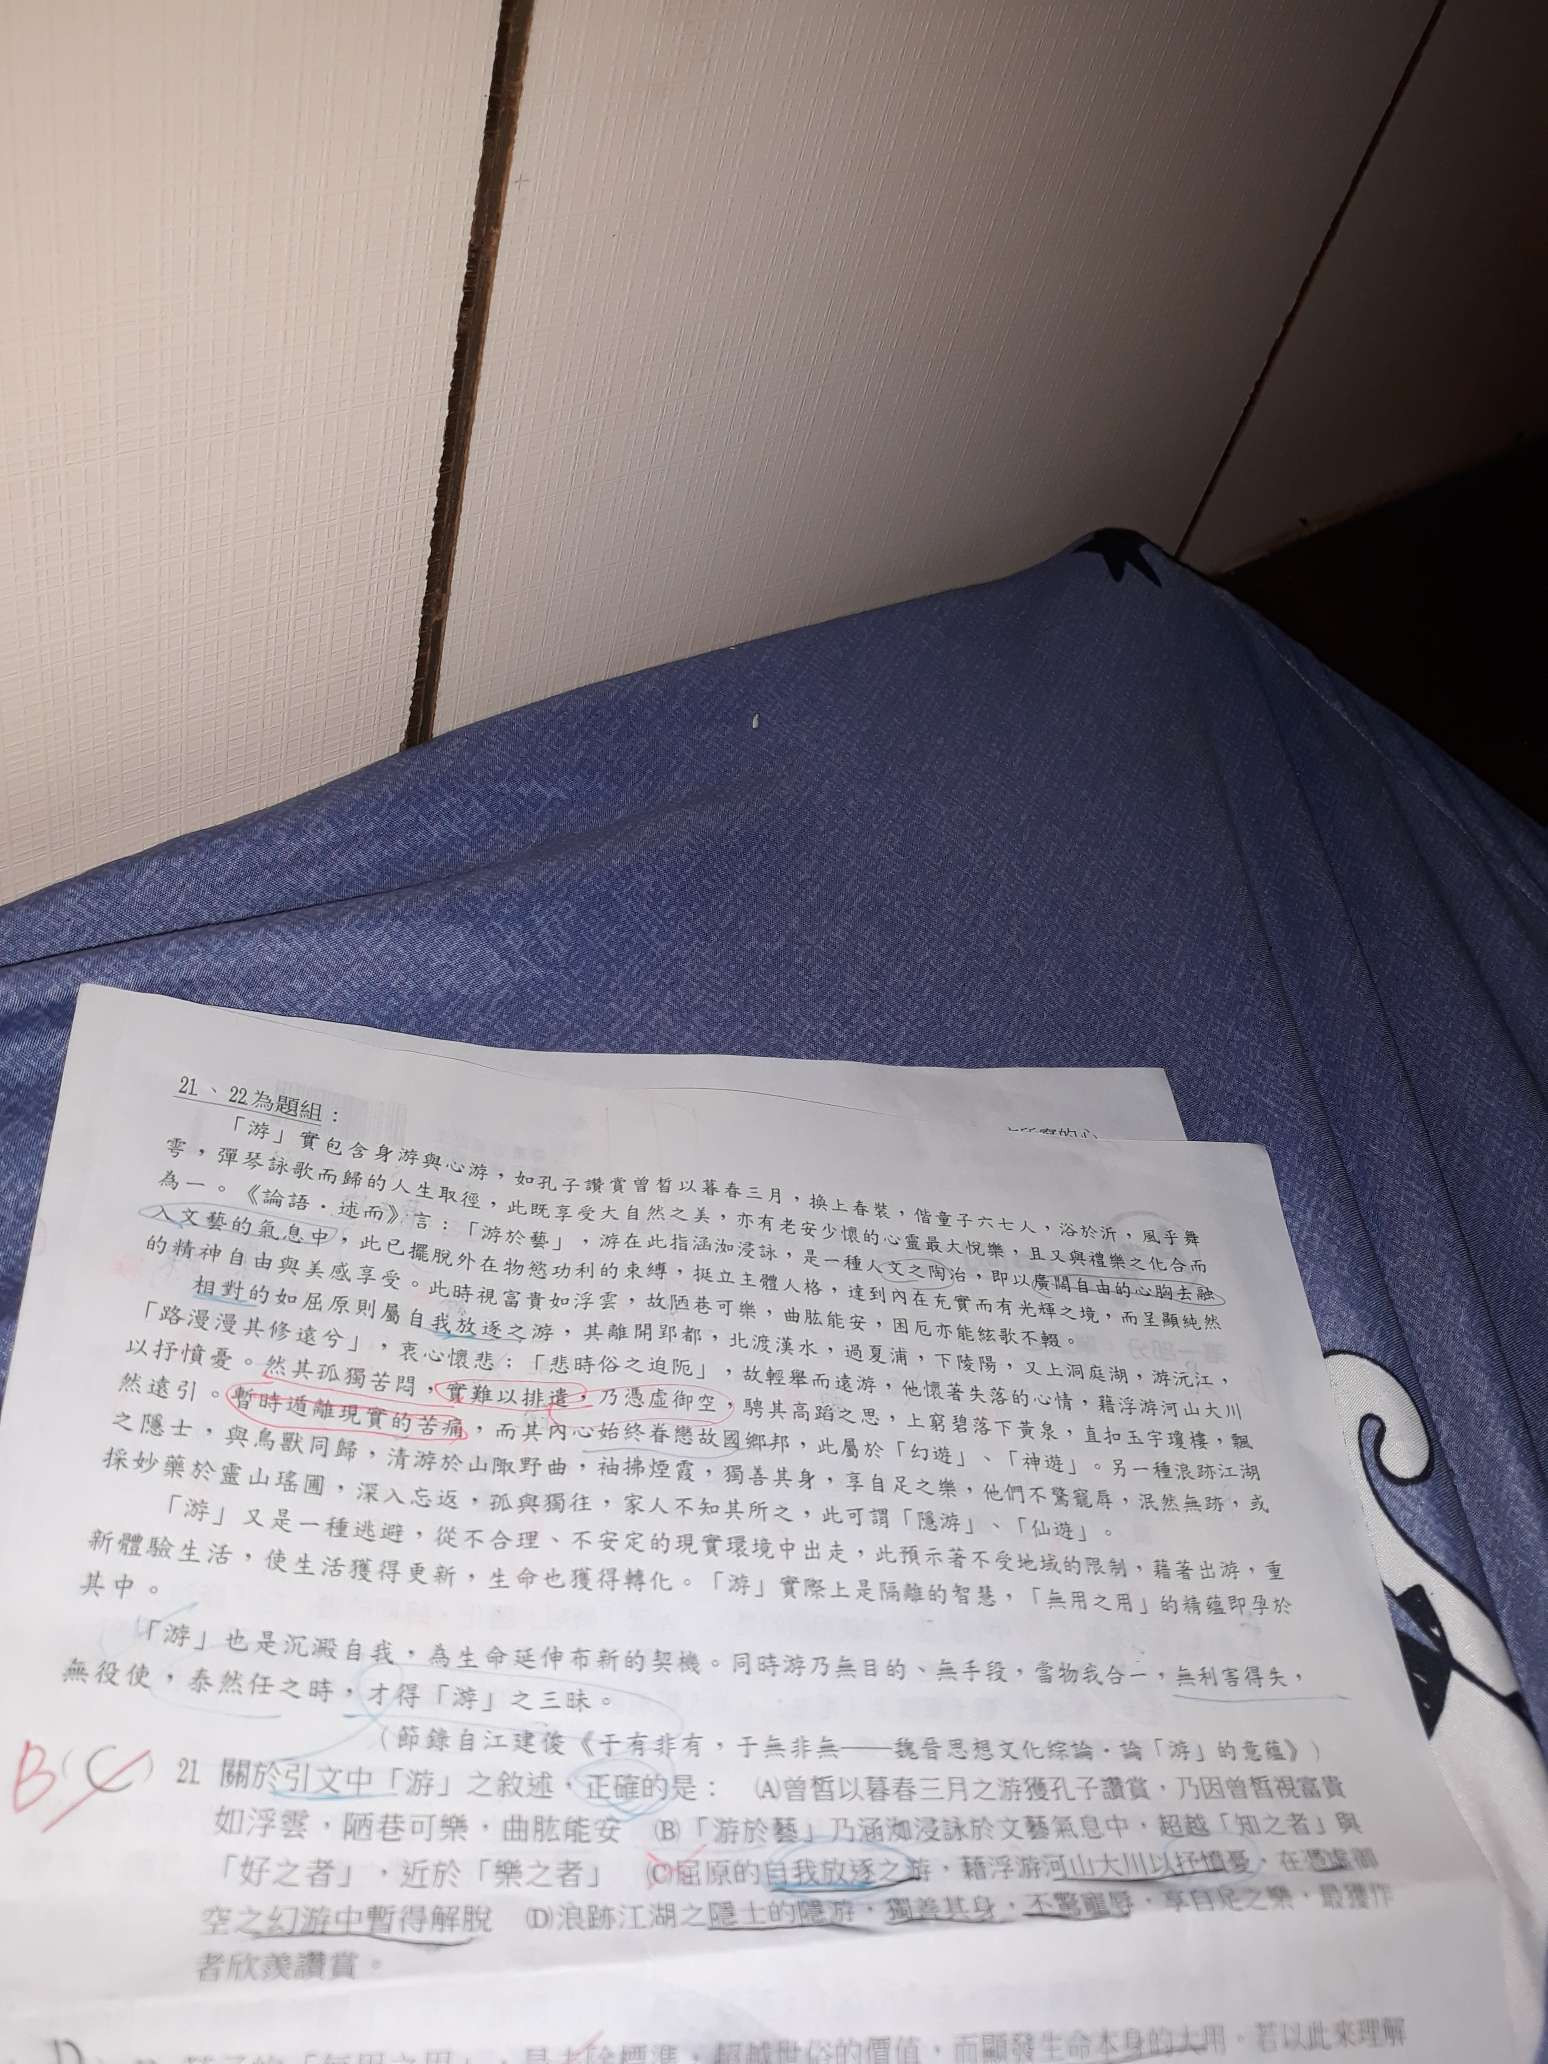 21、22為題組：
「游」實包含身游與心游，如孔子讚賞曾皙以暮春三月，換上春裝，偕童子六七人，浴於沂，風乎舞
雩，彈琴詠歌而歸的人生取徑，此既享受大自然之美，亦有老安少懷的心靈最大悅樂，且又與禮樂之化合而
為一。《論語．述而》言：「游於藝」，游在此指涵泇浸詠，是一種人文之陶冶，即以廣闊自由的心胸去融
入文藝的氣息中，此已擺脫外在物慾功利的束縛，挺立主體人格，達到內在充實而有光輝之境，而呈顯純然
的精神自由與美感享受。此時視富貴如浮雲，故陋巷可樂，曲肱能安，困厄亦能絃歌不輟。
相對的如屈原則屬自我放逐之游，其離開郢都，北渡漢水，過夏浦，下陵陽，又上洞庭湖，游沅江，
「路漫漫其修遠兮」，衷心懷悲：「悲時俗之迫阨」，故輕舉而遠游，他懷著失落的心情，藉浮游河山大川
以抒憤憂。然其孤獨苦悶，實難以排遣，乃憑虛御空，騁其高蹈之思，上窮碧落下黃泉，直扣玉宇瓊樓，飄
然遠引。暫時遁離現實的苦痛，而其內心始終眷戀故國鄉邦，此屬於「幻遊」、「神遊」。另一種浪跡江湖
之隱士，與鳥獸同歸，清游於山陬野曲，袖拂煙霞，獨善其身，享自足之樂，他們不驚寵辱，泯然無跡，或
採妙藥於靈山瑤圃，深入忘返，孤與獨往，家人不知其所之，此可謂「隱游」、「仙遊」。
「游」又是一種逃避，從不合理、不安定的現實環境中出走，此預示著不受地域的限制，藉著出游，重
新體驗生活，使生活獲得更新，生命也獲得轉化。「游」實際上是隔離的智慧，「無用之用」的精蘊即孕於
其中。
「游」也是沉澱自我，為生命延伸布新的契機。同時游乃無目的、無手段，當物我合一，無利害得失，
無役使，泰然任之時，才得「游」之三昧。
（節錄自江建俊《于有非有，于無非無——魏晉思想文化綜論．論「游」的意蘊》）
B（C）21 關於引文中「游」之敘述，正確的是： (A)曾皙以暮春三月之游獲孔子讚賞，乃因曾皙視富貴
如浮雲，陋巷可樂，曲肱能安 (B)「游於藝」乃涵泇浸詠於文藝氣息中，超越「知之者」與
「好之者」，近於「樂之者」 (C)屈原的自我放逐之游，藉浮游河山大川以抒憤憂，在憑虛御
空之幻游中暫得解脫 (D)浪跡江湖之隱士的隱游，獨善其身，不驚寵辱，享自足之樂，最獲作
者欣羨讚賞。
「無用之用」，是去除標準，超越世俗的價值，而顯發生命本身的大用。若以此來理解